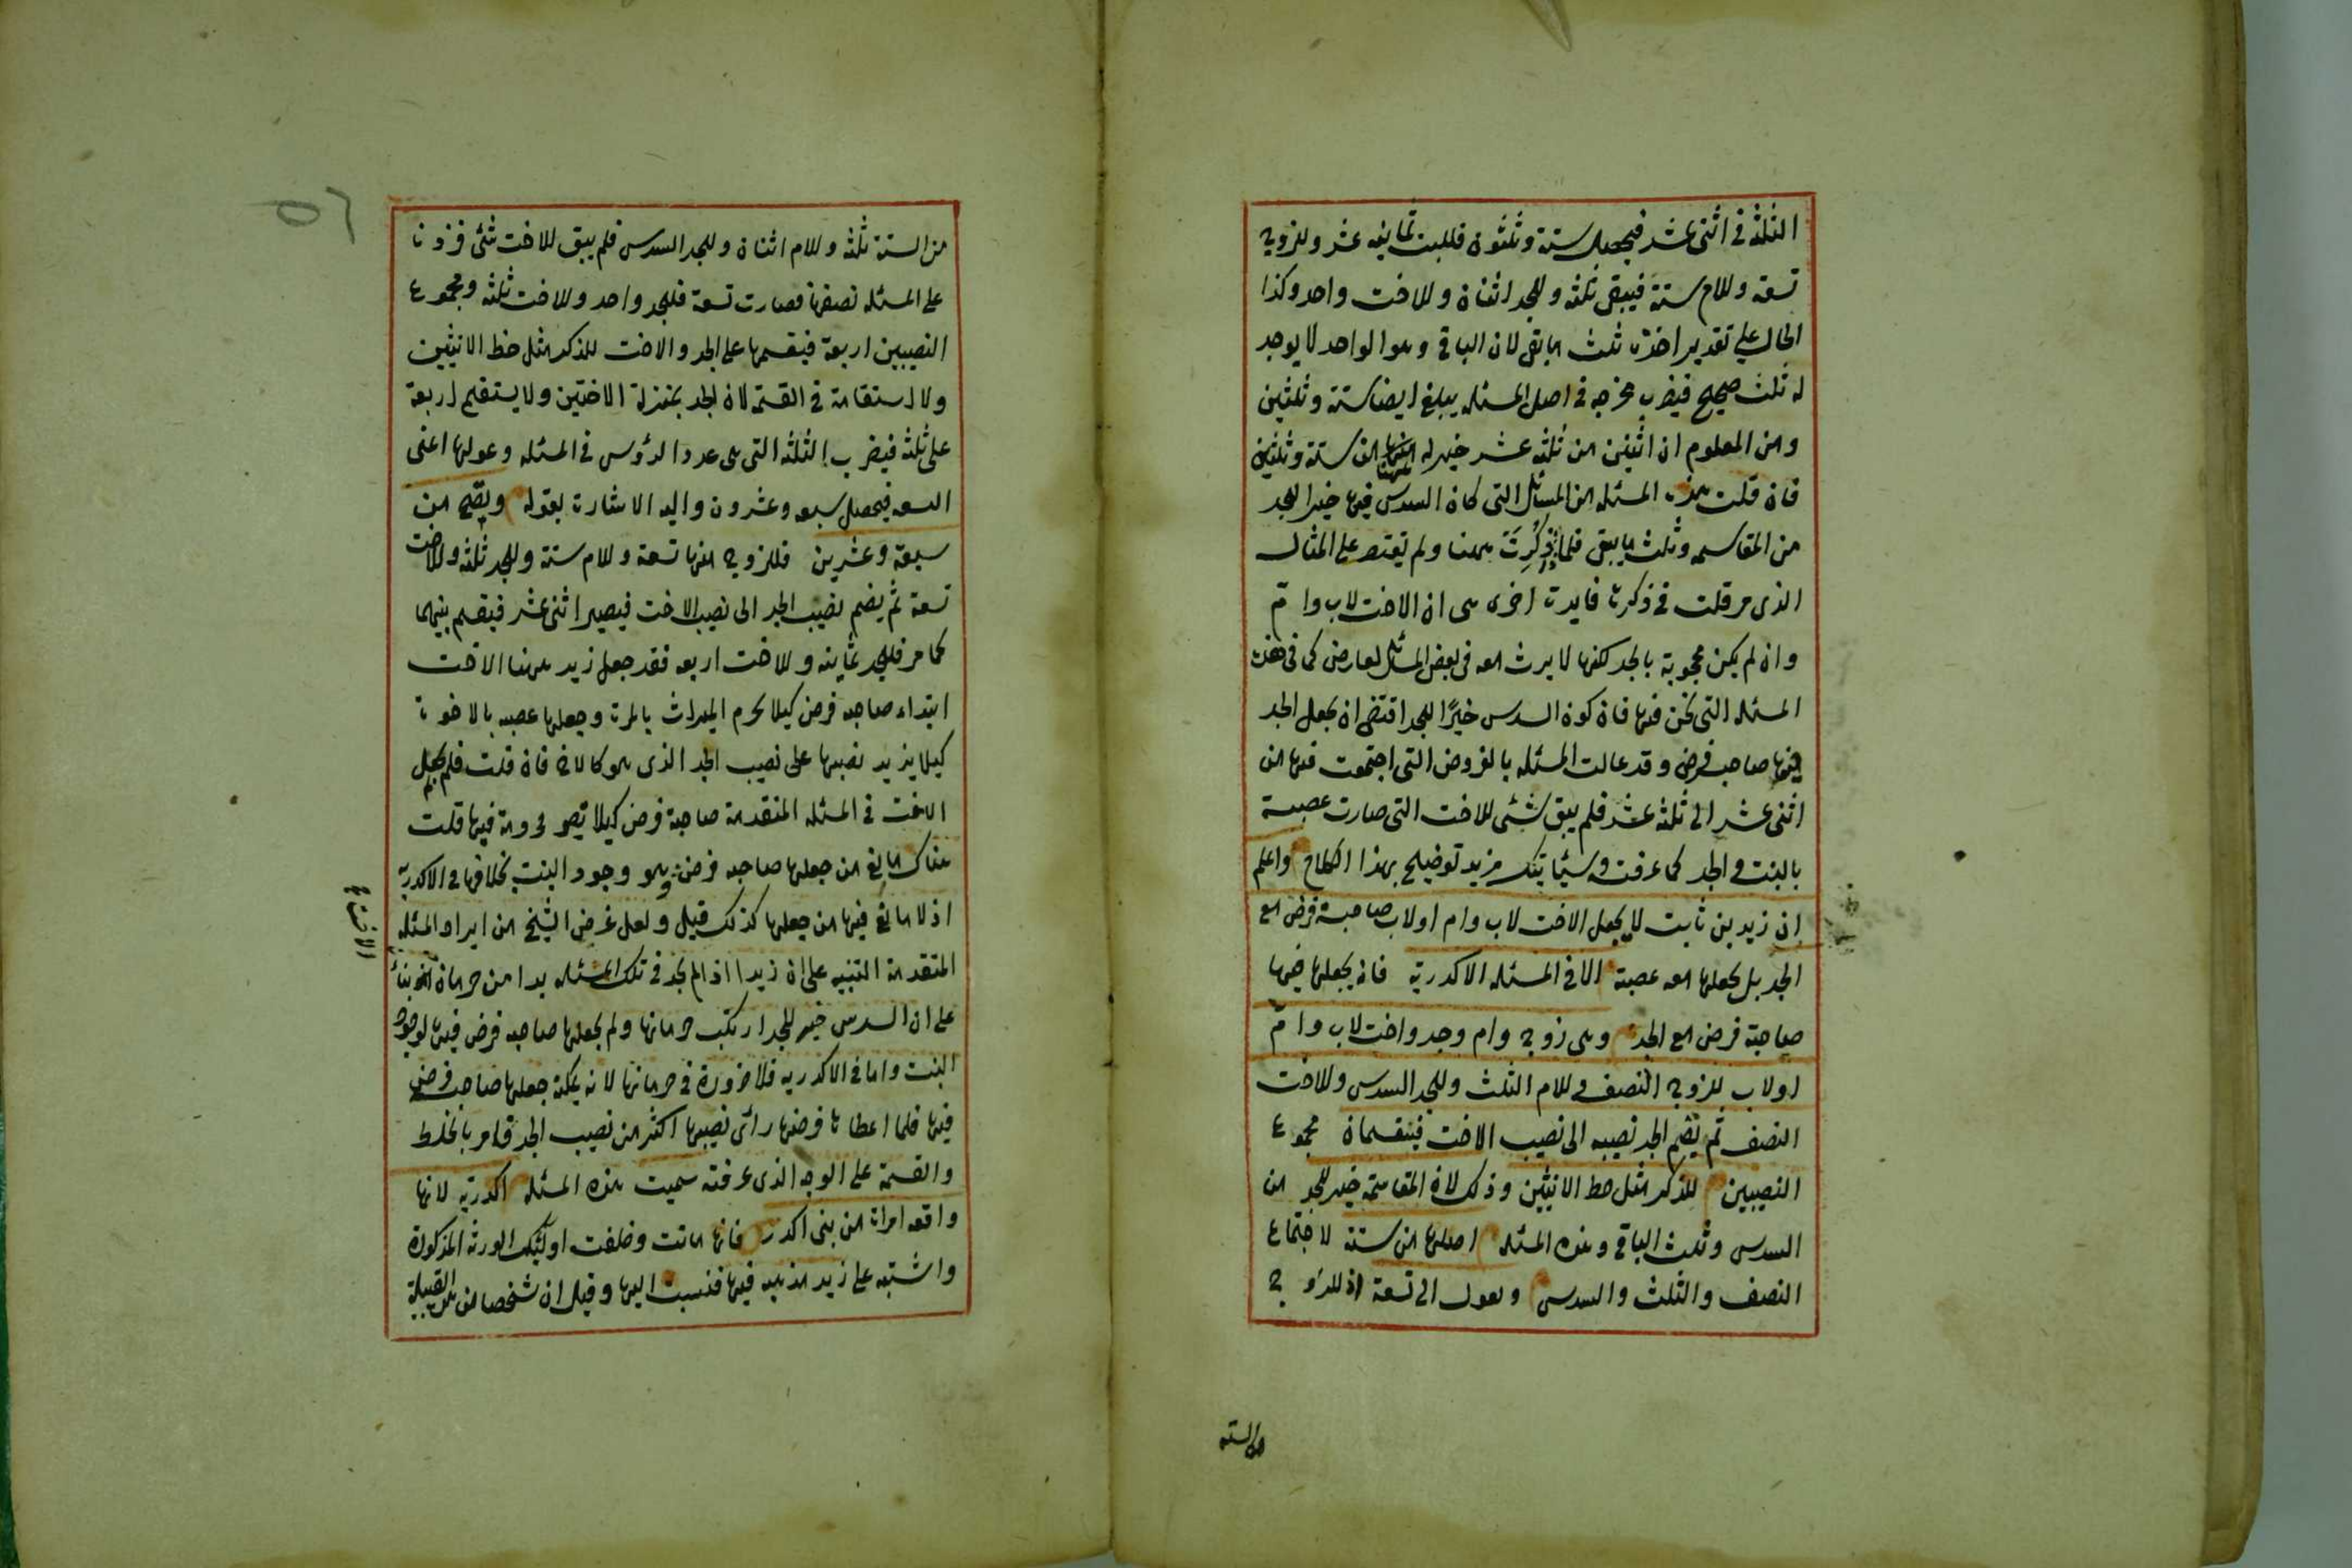 الثلثة فى اثنى عشر فيحصل ستة وثلثون فللبنت ثمانية عشر وللزوج
تسعة وللام ستة فيبقى ثلثة وللجد اثنان وللاخت واحد وكذا
الحال على تقدير اخذه ثلث ما بقى لان الباقى وهو الواحد لا يوجد
له ثلث صحيح فيضرب مخرجه فى اصل المسئله يبلغ ايضا ستة وثلثين
ومن المعلوم ان اثنين من ثلثة عشر خير له من ستة وثلثين
فان قلت هذه المسئله من المسائل التى كان السدس فيها خيرا للجد
من المقاسمه وثلث ما يبقى فلما ذكرت ههنا ولم تقتصر على المثال
الذى مر قلت فى ذكره فايدة اخرى هى ان الاخت لاب وام
وان لم يكن محجوبة بالجد لكنها لا يرث معه فى بعض المسائل لعارض كما فى هذه
المسئله التى نحن فيها فان كون السدس خيرًا للجد اقتضى ان يجعل الجد
فيها صاحب فرض وقد عالت المسئله بالفروض التى اجتمعت فيها من
اثنى عشر الى ثلثة عشر فلم يبق شئى للاخت التى صارت عصبة
بالبنت والجد كما عرفت وسيأتيك مزيد توضيح بهذا الكلام واعلم
ان زيد بن ثابت لا يجعل الاخت لاب وام اولاب صاحبة فرض مع
الجد بل يجعلها معه عصبة الا فى المسئله الاكدرية فانه يجعلها فيها
صاحبة فرض مع الجد وهى زوج وام وجد واخت لاب وام
اولاب للزوج النصف وللام الثلث وللجد السدس وللاخت
النصف ثم يضم الجد نصيبه الى نصيب الاخت فيقسمان مجموع
النصيبين للذكر مثل حظ الانثيين وذلك لان المقاسمة خير للجد من
السدس وثلث الباقى وهذه المسئله اصلها من ستة لاجتماع
النصف والثلث والسدس وتعول الى تسعة اذ للزوج
من الستة
٥٦
من الستة ثلثة وللام اثنان وللجد السدس فلم يبق للاخت شئى فزدنا
على المسئله نصفها فصارت تسعة فللجد واحد وللاخت ثلثة ومجموع
النصيبين اربعة فيقسمها على الجد والاخت للذكر مثل حظ الانثيين
ولا استقامة فى القسمة لان الجد بمنزلة الاختين ولا يستقيم اربعة
على ثلثة فيضرب الثلثة التى هى عدد الرؤس فى المسئله وعولها اعنى
التسعة فيحصل سبعة وعشرون واليه الاشارة بقوله ويصح من
سبعة وعشرين فللزوج منها تسعة وللام ستة وللجد ثلثة وللاخت
تسعة ثم يضم نصيب الجد الى نصيب الاخت فيصير اثنى عشر فيقسم بينهما
كما مر فللجد ثمانية وللاخت اربعة فقد جعل زيد ههنا الاخت
ابتداء صاحبة فرض كيلا يحرم الميراث بالمرة وجعلها عصبه بالاخرة
كيلا يزيد نصيبها على نصيب الجد الذى هو كالاخ فان قلت فلم لم يجعل
الاخت فى المسئله المتقدمة صاحبة فرض كيلا تصير محرومة فيها قلت
هناك مانع من جعلها صاحبة فرض وهو وجود البنت بخلافها فى الاكدرية
اذ لا مانع فيها من جعلها كذلك قيل ولعل غرض الشيخ من ايراد المسئله
المتقدمة التنبيه على ان زيدا اذا لم يجد فى تلك المسئله بدا من حرمان الاخت بناء
على ان السدس خير للجد ارتكب حرمانها ولم يجعلها صاحبة فرض فيها لوجود
البنت واما فى الاكدرية فلا ضرورة فى حرمانها لانه يمكنه جعلها صاحبة فرض
فيها فلما اعطاها فرضها رأى نصيبها اكثر من نصيب الجد فامر بالخلط
والقسمة على الوجه الذى عرفته سميت هذه المسئله اكدرية لانها
واقعة امراة من بنى اكدر فانها ماتت وخلفت اولئك الورثة المذكورة
واشتبه على زيد مذهبه فيها فنسبت اليها وقيل ان شخصا من تلك القبيلة